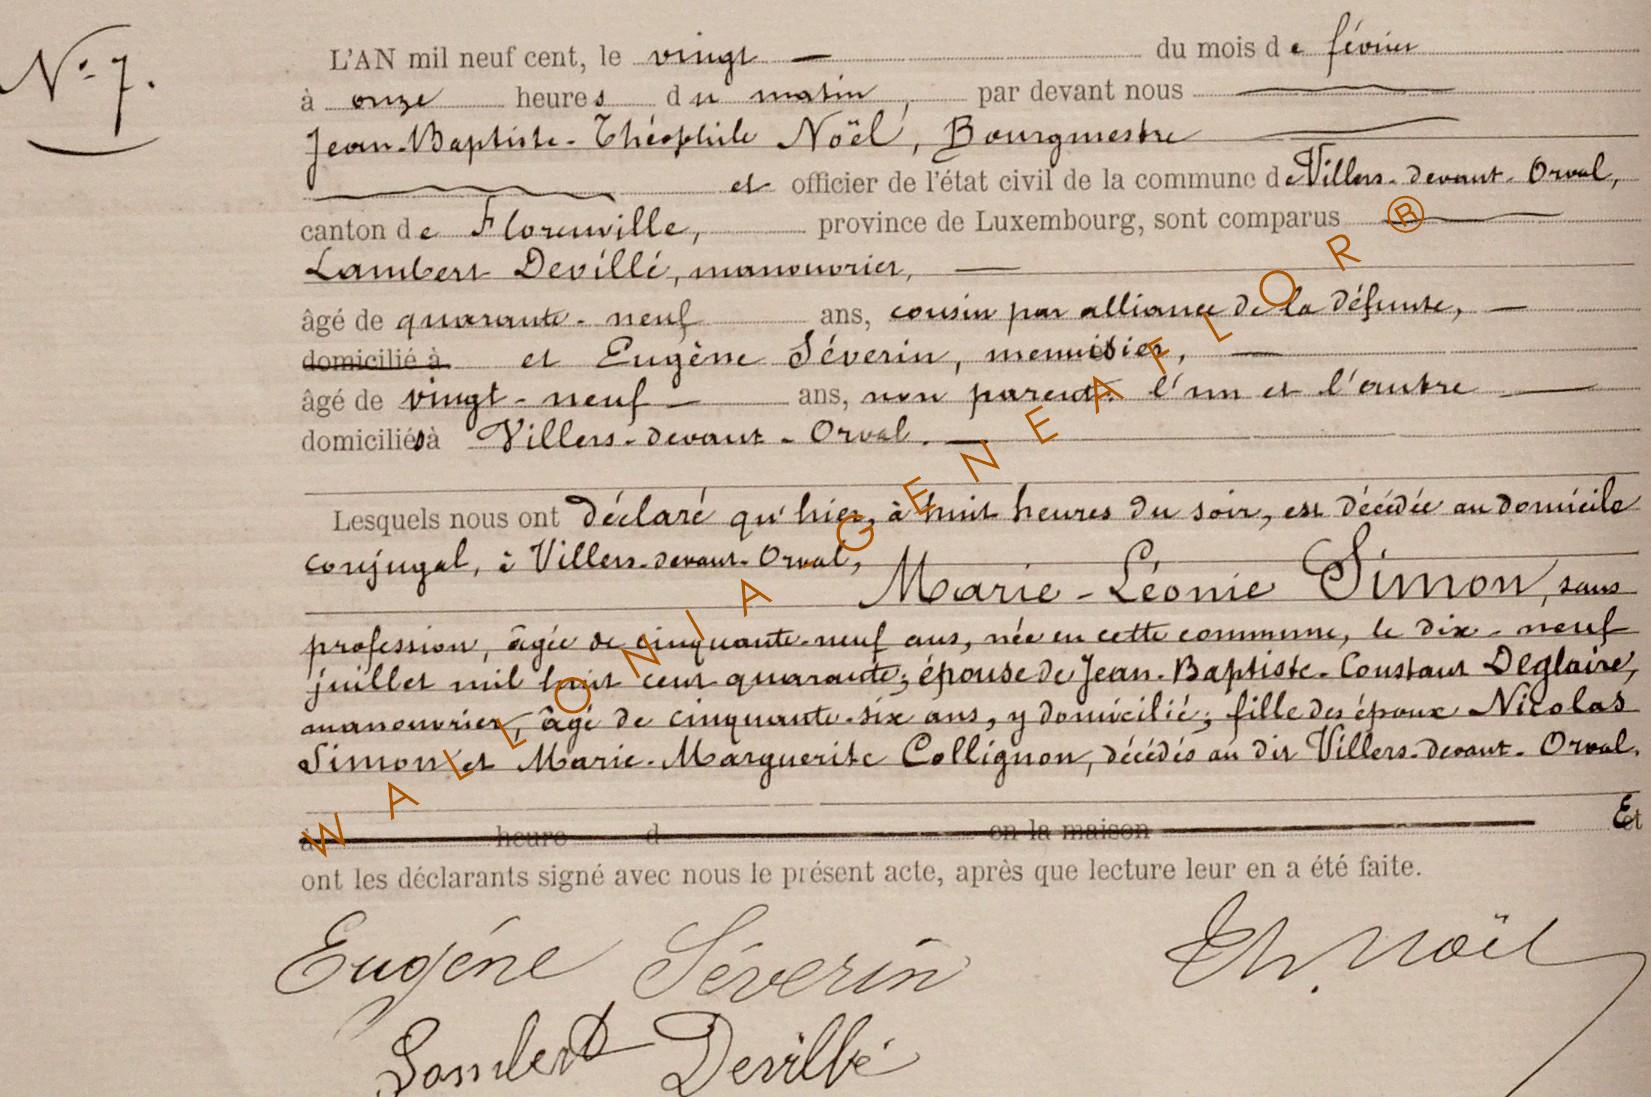 N° 7.
L'AN mil neuf cent, le vingt — du mois de février
à onze heures du matin, par devant nous
Jean-Baptiste-Théophile Noël, Bourgmestre
et officier de l'état civil de la commune de Villers-devant-Orval,
canton de Florenville, province de Luxembourg, sont comparus
Lambert Devillé, manouvrier, —
âgé de quarante-neuf ans, cousin par alliance de la défunte, —
domicilié à et Eugène Séverin, menuisier, —
âgé de vingt-neuf — ans, non parent. l'un et l'autre —
domiciliés à Villers-devant-Orval. —
Lesquels nous ont déclaré qu'hier, à huit heures du soir, est décédée au domicile
conjugal, à Villers-devant-Orval,
Marie-Léonie Simon, sans
profession, âgée de cinquante-neuf ans, née en cette commune, le dix-neuf
juillet mil huit cent quarante; épouse de Jean-Baptiste-Constant Deglaire,
manouvrier, âgé de cinquante-six ans, y domicilié; fille des époux Nicolas
Simon et Marie-Marguerite Collignon, décédés au dit Villers-devant-Orval.
à heure d en la maison Et
ont les déclarants signé avec nous le présent acte, après que lecture leur en a été faite.
Eugéne Séverin Th. Noël
Lambert Devillé
WALLONIA-GENEAFLOR ®